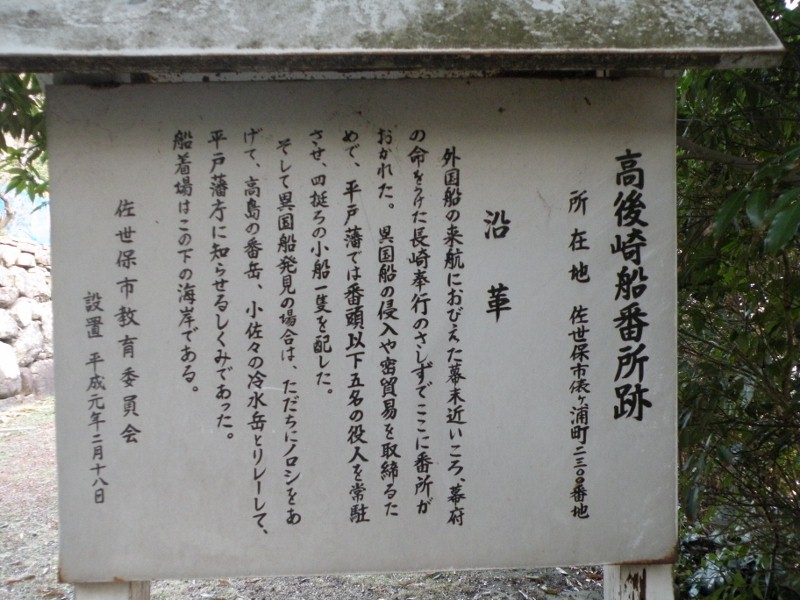 高後崎船番所跡
所在地 佐世保市俵ヶ浦町二三〇〇番地
沿革
外国船の来航におびえた幕末近いころ、幕府
の命をうけた長崎奉行のさしずでここに番所が
おかれた。異国船の侵入や密貿易を取締るた
めで、平戸藩では番頭以下五名の役人を常駐
させ、四挺ろの小船一隻を配した。
そして異国船発見の場合は、ただちにノロシをあ
げて、高島の番岳、小佐々の冷水岳とリレーして、
平戸藩庁に知らせるしくみであった。
船着場はこの下の海岸である。
佐世保市教育委員会
設置 平成元年二月十八日